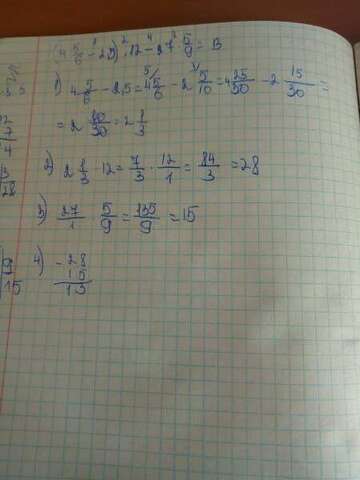 (4 5/6 - 2,5) · 12 - 27 · 5/9 = 13
1) 4 5/6 - 2,5 = 4 5/6 - 2 5/10 = 4 25/30 - 2 15/30 =
= 2 10/30 = 2 1/3
2) 2 1/3 · 12 = 7/3 · 12/1 = 84/3 = 28
3) 27/1 · 5/9 = 135/9 = 15
4) - 28
15
13